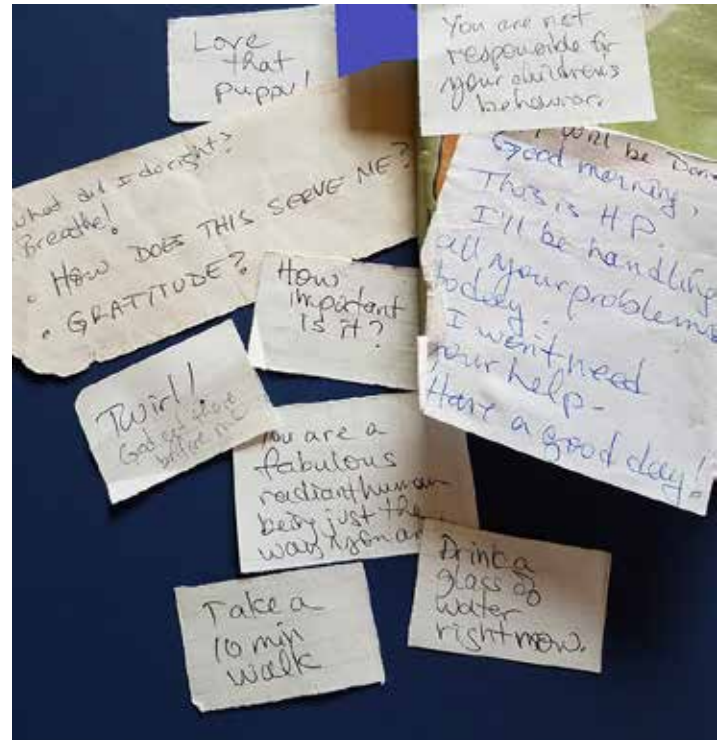 Love
that
puppy!
You are not
responsible for
your children's
behavior.
What did I do right?
Breathe!
• HOW DOES THIS SERVE ME?
• GRATITUDE?
will be Done
Good morning,
This is HP.
I'll be handling
all your problems
today.
I won't need
your help-
Have a good day!
How
important
is it?
Twirl!
God got there
before me
You are a
fabulous
radiant human
being just the
way you are
Take a
10 min
walk
Drink a
glass of
water
right now.